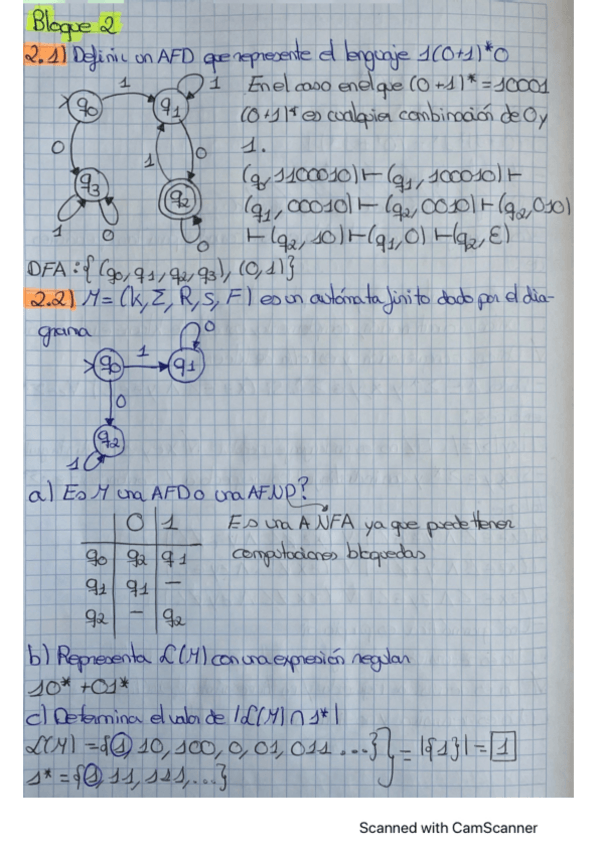 Bloque 2
2.1) Definir un AFD que represente el lenguaje 1(0+1)*0
En el caso en el que (0+1)* = 10001
(0+1)* es cualquier combinación de 0 y
1.
(q0, 1100010) ⊢ (q1, 100010) ⊢
(q1, 00010) ⊢ (q2, 0010) ⊢ (q2, 010)
⊢ (q2, 10) ⊢ (q1, 0) ⊢ (q2, Ɛ)
q0 1 q1 1
0 1 0
q3 q2
1 0 0
DFA : {(q0, q1, q2, q3), (0,1)}
2.2) M = (K, Σ, R, S, F) es un autómata finito dado por el dia-
grama
q0 1 q1 0
0
q2
1
a) Es M una AFD o una AFND?
0 1
q0 q2 q1
q1 q1 –
q2 – q2
Es una A NFA ya que puede tener
computaciones bloquedas
b) Representa L(M) con una expresión regular
10* + 01*
c) Determina el valor de |L(M) ∩ 1*|
L(M) = {1, 10, 100, 0, 01, 011 ...} = |{1}| = 1
1* = {1, 11, 111, ...}
Scanned with CamScanner